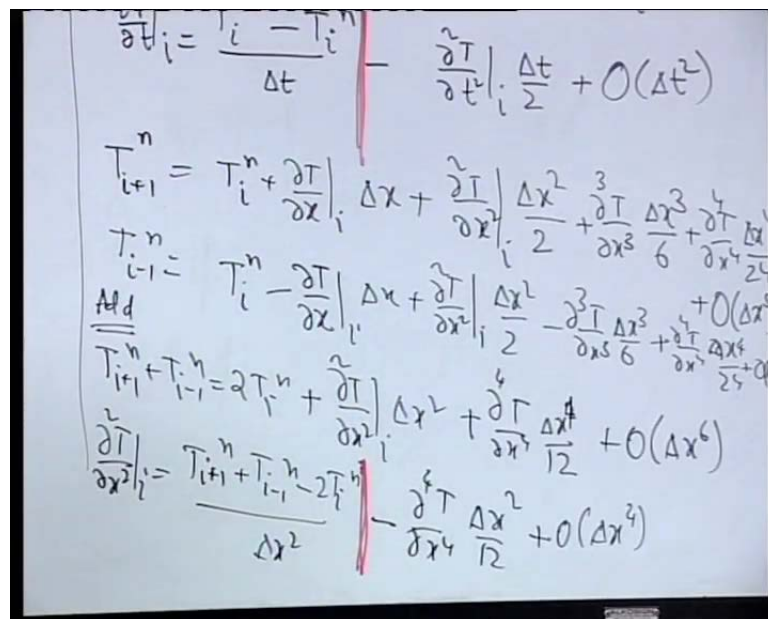 ∂T/∂t|_i = (T_i − T_i^n)/Δt − ∂²T/∂t²|_i Δt/2 + O(Δt²)
T_{i+1}^n = T_i^n + ∂T/∂x|_i Δx + ∂²T/∂x²|_i Δx²/2 + ∂³T/∂x³ Δx³/6 + ∂⁴T/∂x⁴ Δx⁴/24
+ O(Δx
T_{i-1}^n = T_i^n − ∂T/∂x|_i Δx + ∂²T/∂x²|_i Δx²/2 − ∂³T/∂x³ Δx³/6 + ∂⁴T/∂x⁴ Δx⁴/24 + O
Add
T_{i+1}^n + T_{i-1}^n = 2T_i^n + ∂²T/∂x²|_i Δx² + ∂⁴T/∂x⁴ Δx⁴/12 + O(Δx⁶)
∂²T/∂x²|_i = (T_{i+1}^n + T_{i-1}^n − 2T_i^n)/Δx² − ∂⁴T/∂x⁴ Δx²/12 + O(Δx⁴)